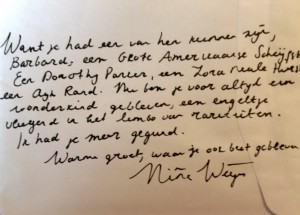 Want je had een van hen kunnen zijn,
Barbara; een Grote Amerikaanse Schrijfster
Een Dorothy Parker, een Zora Neale Hurst
een Ayn Rand. Nu ben je voor altijd een
wonderkind gebleven, een engeltje
vliegend in het limbo van rariteiten.
Ik had je meer gegund.
Warme groet, waar je ook bent gebleven
Nina Weijers